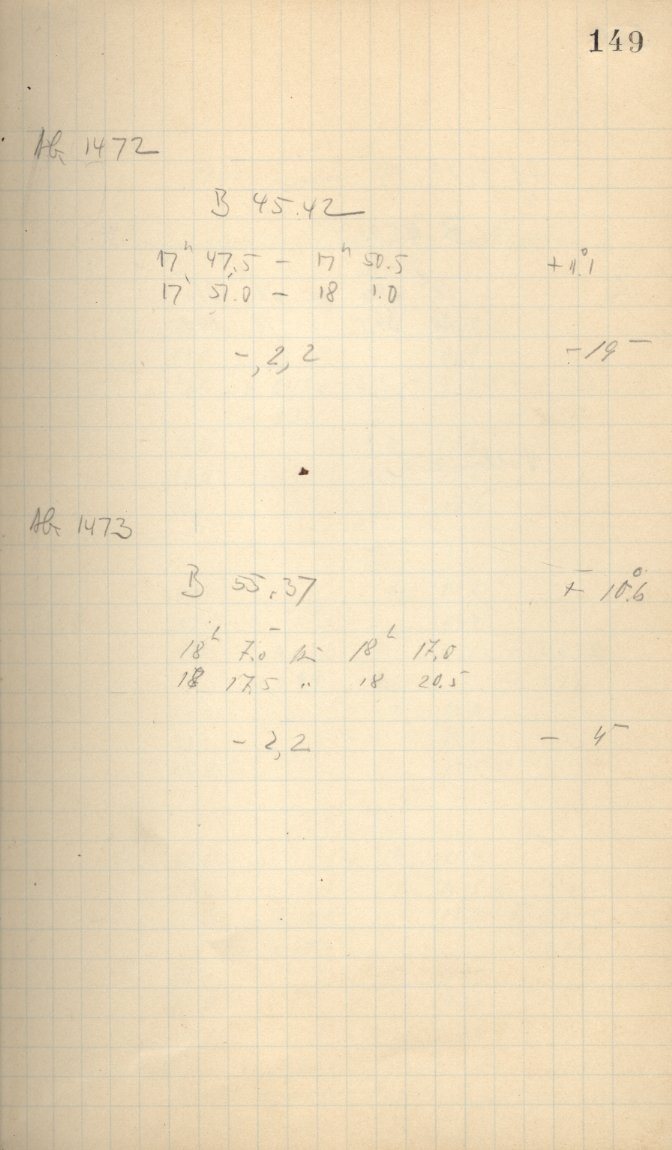 149
Ab 1472
B 45.42
17ʰ 47.5 – 17ʰ 50.5 + 11.°1
17 51.0 – 18 1.0
–, 2, 2 – 19 –
Ab 1473
B 55.37 + 10.°6
18ʰ 7.0 bis 18ʰ 17.0
18 17.5 " 18 20.5
– 2, 2 – 4 –